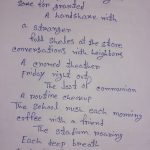 gone for granted
A handshake with
a stranger
full shelves at the store
conversations with neighbors
A crowed theather
friday night out,
The test of communion
A routine checkup
The school rush each morning
coffee with a friend
The stadium roaring
Each deep breath